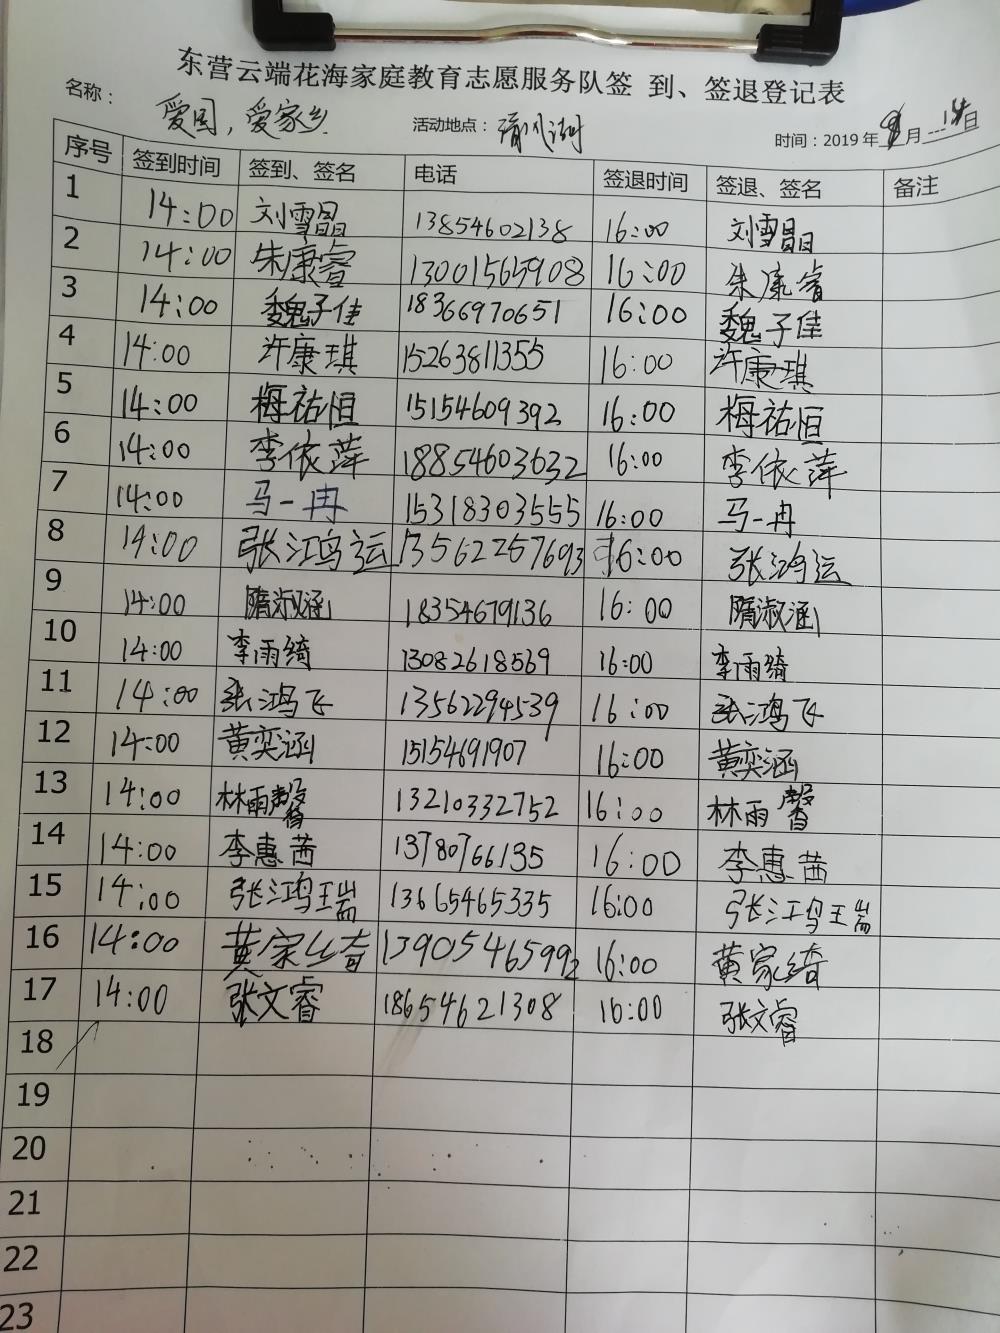 东营云端花海家庭教育志愿服务队签 到、签退登记表
名称： 爱国，爱家乡 活动地点：清风湖 时间：2019年 月 日
序号 签到时间 签到、签名 电话 签退时间 签退、签名 备注
1 14:00 刘雪晶 13854602138 16:00 刘雪晶
2 14:00 朱康睿 13001565908 16:00 朱康睿
3 14:00 魏子佳 18366970651 16:00 魏子佳
4 14:00 许康琪 15263811355 16:00 许康琪
5 14:00 梅祐恒 15154609392 16:00 梅祐恒
6 14:00 李依萍 18854603632 16:00 李依萍
7 14:00 马一冉 15318303555 16:00 马一冉
8 14:00 张鸿运 13562257693 16:00 张鸿运
9 14:00 隋淑涵 18354679136 16:00 隋淑涵
10 14:00 李雨绮 13082618569 16:00 李雨绮
11 14:00 张鸿飞 13562294539 16:00 张鸿飞
12 14:00 黄奕涵 15154691907 16:00 黄奕涵
13 14:00 林雨馨 13210332752 16:00 林雨馨
14 14:00 李惠茜 13780766135 16:00 李惠茜
15 14:00 张鸿瑞 13665465335 16:00 张鸿瑞
16 14:00 黄家绮 13905465992 16:00 黄家绮
17 14:00 张文睿 18654621308 16:00 张文睿
18
19
20
21
22
23